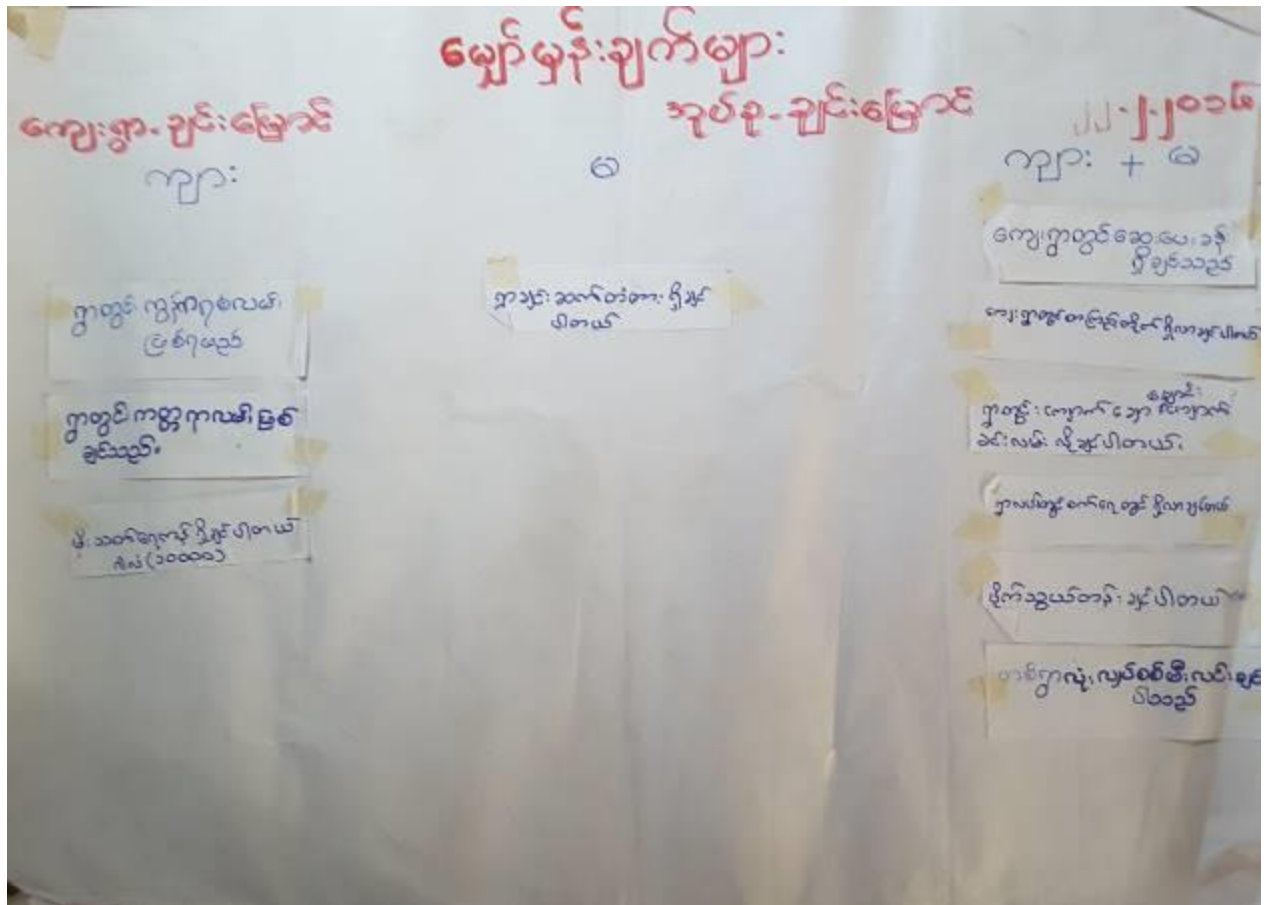 မျှော်မှန်းချက်များ
ကျေးရွာ-ချင်းမြောင် အုပ်စု-ချင်းမြောင် ၂၂-၂-၂၀၁၆
ကျား မ ကျား + မ
ရွာတွင် ကွန်ကရစ်လမ်း
ဖြစ်ရမည်
ရွာတွင် ကတ္တရာလမ်း ဖြစ်
ချင်သည်။
မိုးသတ်ရေကန် ရှိချင်ပါတယ်
ဂါလံ(၁၀၀၀၀)
ရွာချင်းဆက်တံတား ရှိချင်
ပါတယ်
ကျေးရွာတွင် ဆေးပေးခန်း
ရှိချင်သည်
ကျေးရွာတွင် စာကြည့်တိုက် ရှိလာချင်ပါတယ်
ရွာတွင်း ကျောက်ချော
ခင်းလမ်း လိုချင်ပါတယ်၊
ရွာလယ်တွင် စက်ရေတွင်း ရှိလာချင်တယ်
ပိုက်သွယ်တန်းချင်ပါတယ်
တစ်ရွာလုံး လျှပ်စစ်မီးလင်းချင်
ပါသည်